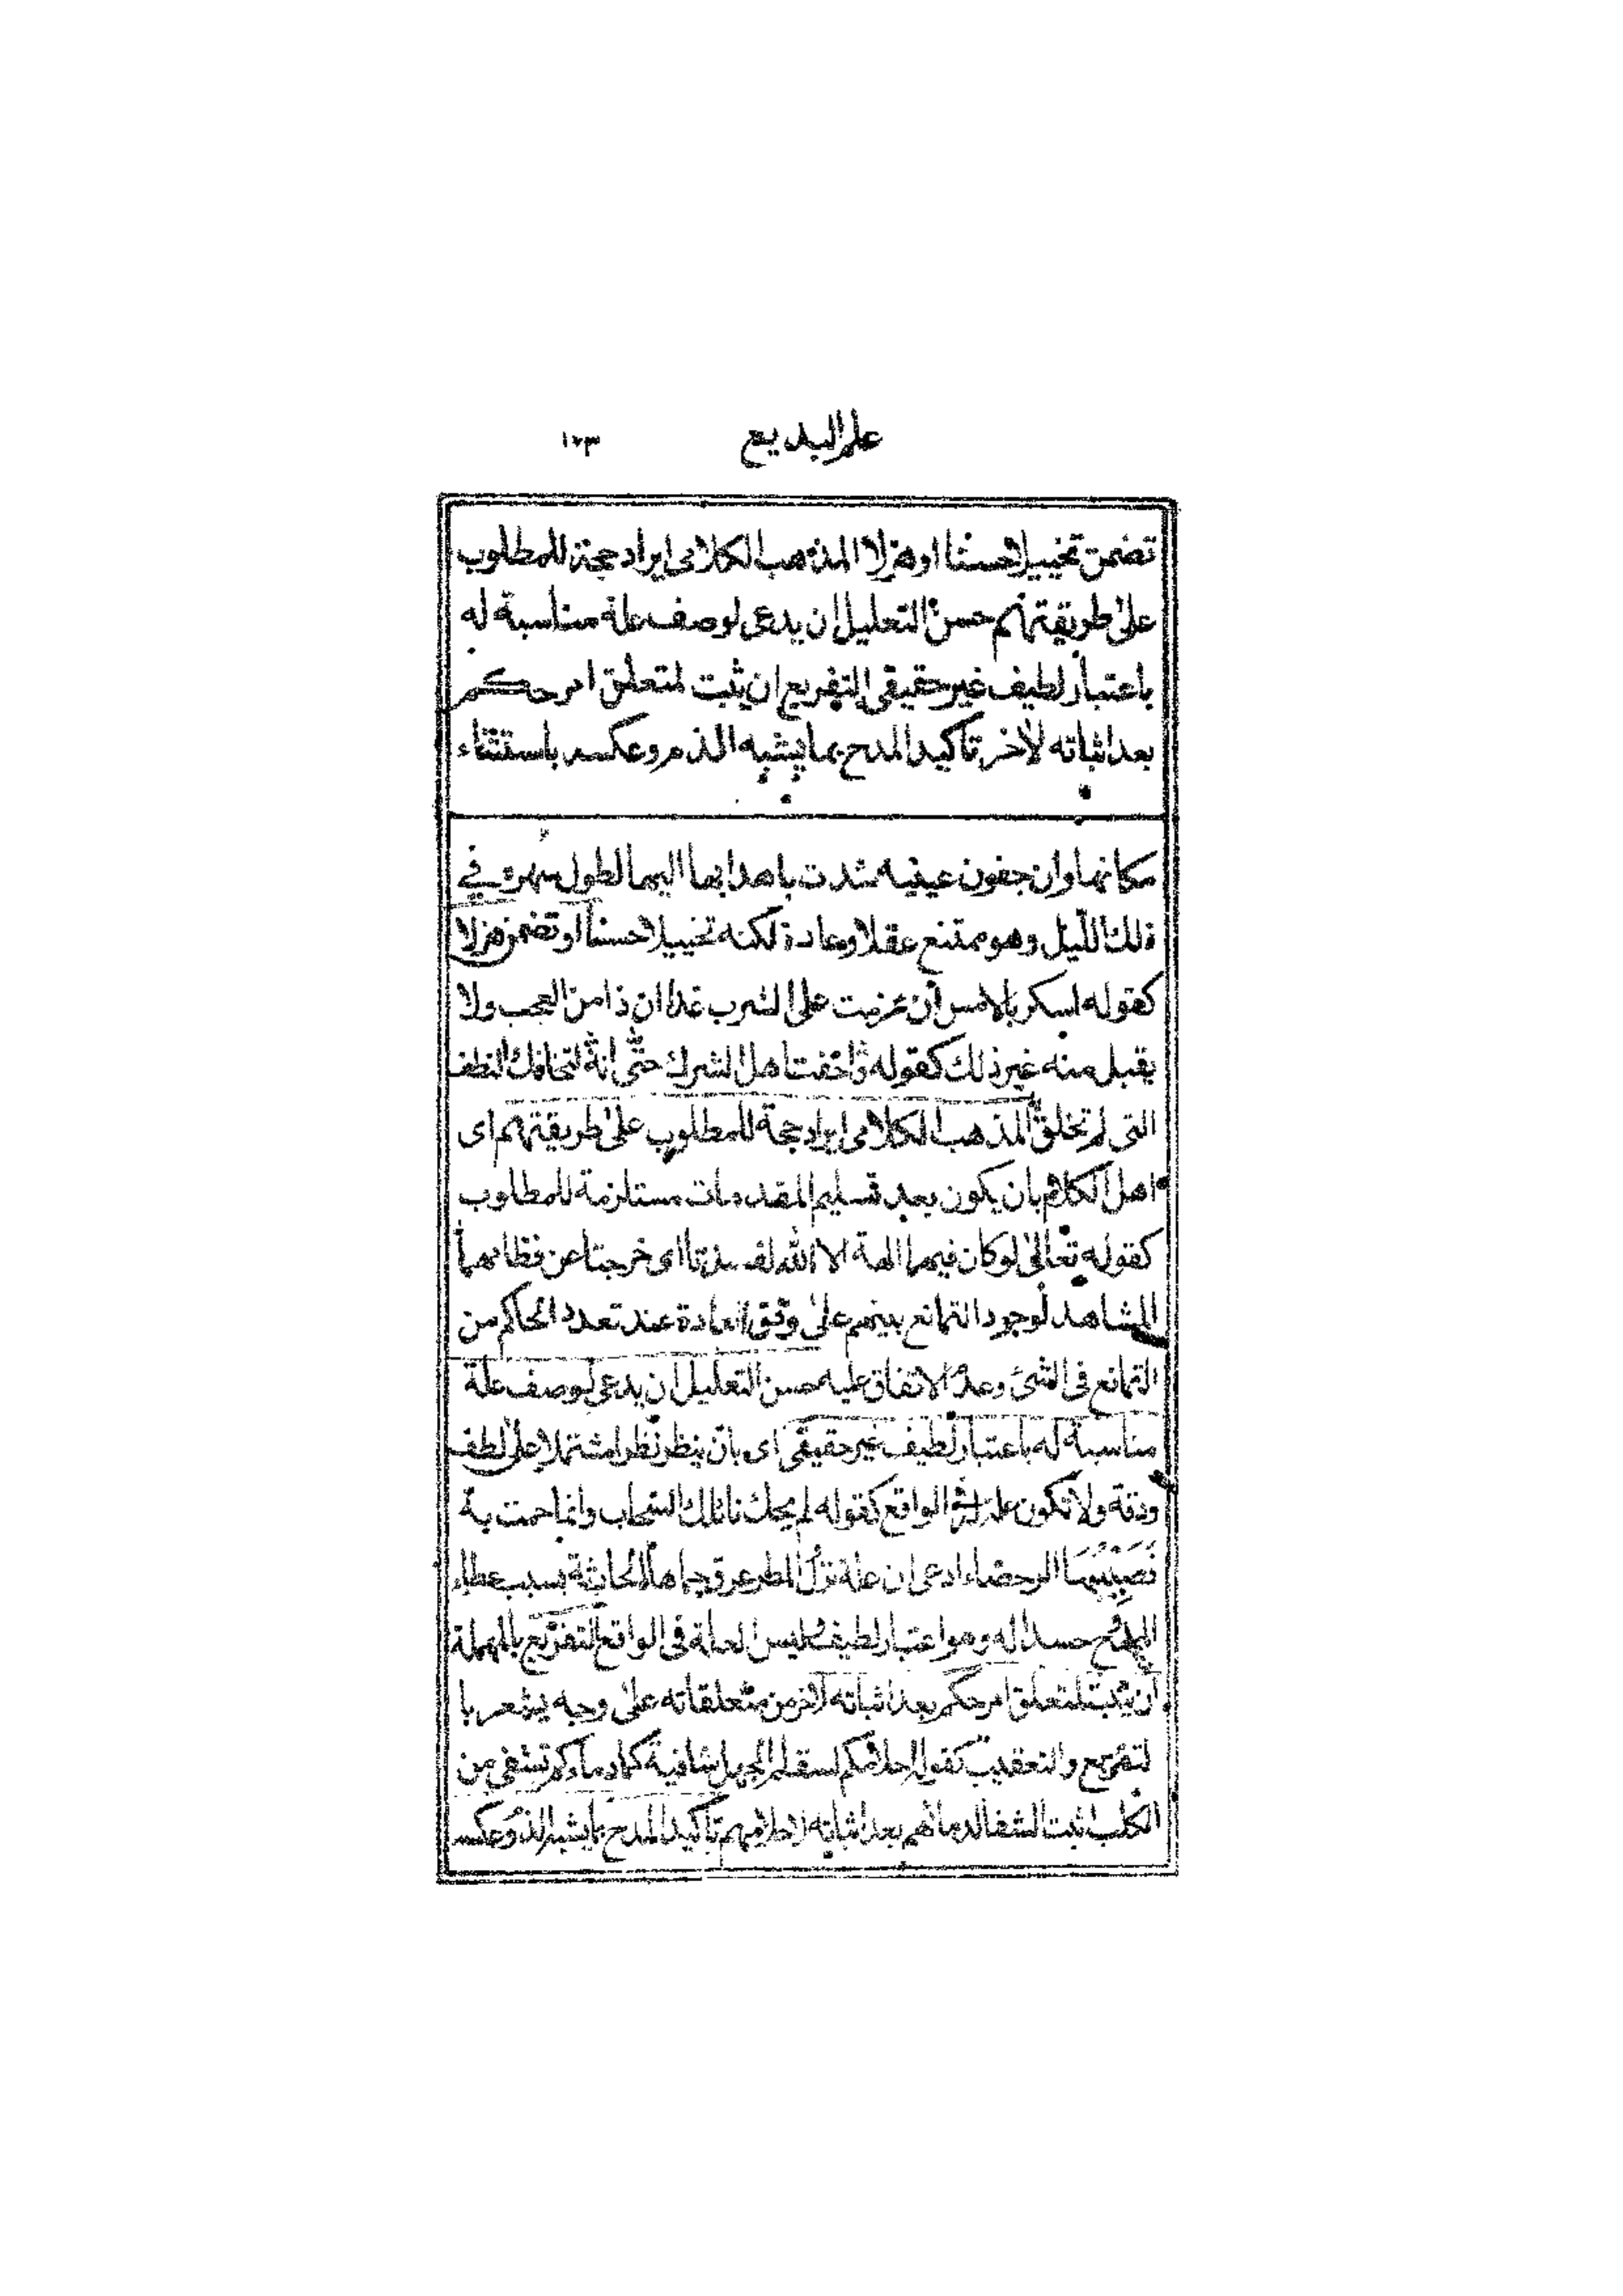 علم البديع ١٧٣
تضمن تخييلا حسنا او هزلا المذهب الكلامى ايراد حجة للمطلوب
على طريقتهم حسن التعليل ان يدعى لوصف علة مناسبة له
باعتبار لطيف غير حقيقى التفريع ان يثبت لمتعلق امر حكم
بعد اثباته لاخر تاكيد المدح بما يشبه الذم وعكسه باستثناء
مكانها وان جفون عينيه شدت باهدابها اليها لطول سهره في
ذلك الليل وهو ممتنع عقلا وعادة لكنه تخييلا حسنا او تضمن هزلا
كقوله اسكر بالامس ان عزمت على الشرب غدا ان ذا من العجب ولا
يقبل منه غير ذلك كقوله واخفت اهل الشرك حتى انه لتخافك النطف
التى لم تخلق المذهب الكلامى ايراد حجة للمطلوب على طريقتهم اى
اهل الكلام بان يكون بعد تسليم المقدمات مستلزمة للمطلوب
كقوله تعالى لو كان فيهما الهة الا الله لفسدتا اى خرجتا عن نظامهما
المشاهد لوجود التمانع بينهم على وفق العادة عند تعدد الحاكم من
التمانع فى الشئ وعدم الاتفاق عليه حسن التعليل ان يدعى لوصف علة
مناسبة له باعتبار لطيف غير حقيقى اى بان ينظر نظرا مشتملا على لطف
ودقة ولا تكون علة فى الواقع كقوله لم يحك نائلك السحاب وانما حمت به
فصبيبها الرحضاء ادعى ان علة نزل المطر عرق حماها الحادثة بسبب عطاء
الممدوح حسدا له وهو اعتبار لطيف وليس العلة فى الواقع التفريع بالمهملة
ان يثبت لمتعلق امر حكم بعد اثباته لاخر من متعلقاته على وجه يشعر با
لتفريع والتعقيب كقوله احلامكم لسقام الجهل شافية كما دماءكم تشفى من
الكلب اثبت الشفا لدمائهم بعد اثباته لاحلامهم تاكيد المدح بما يشبه الذم وعكسه